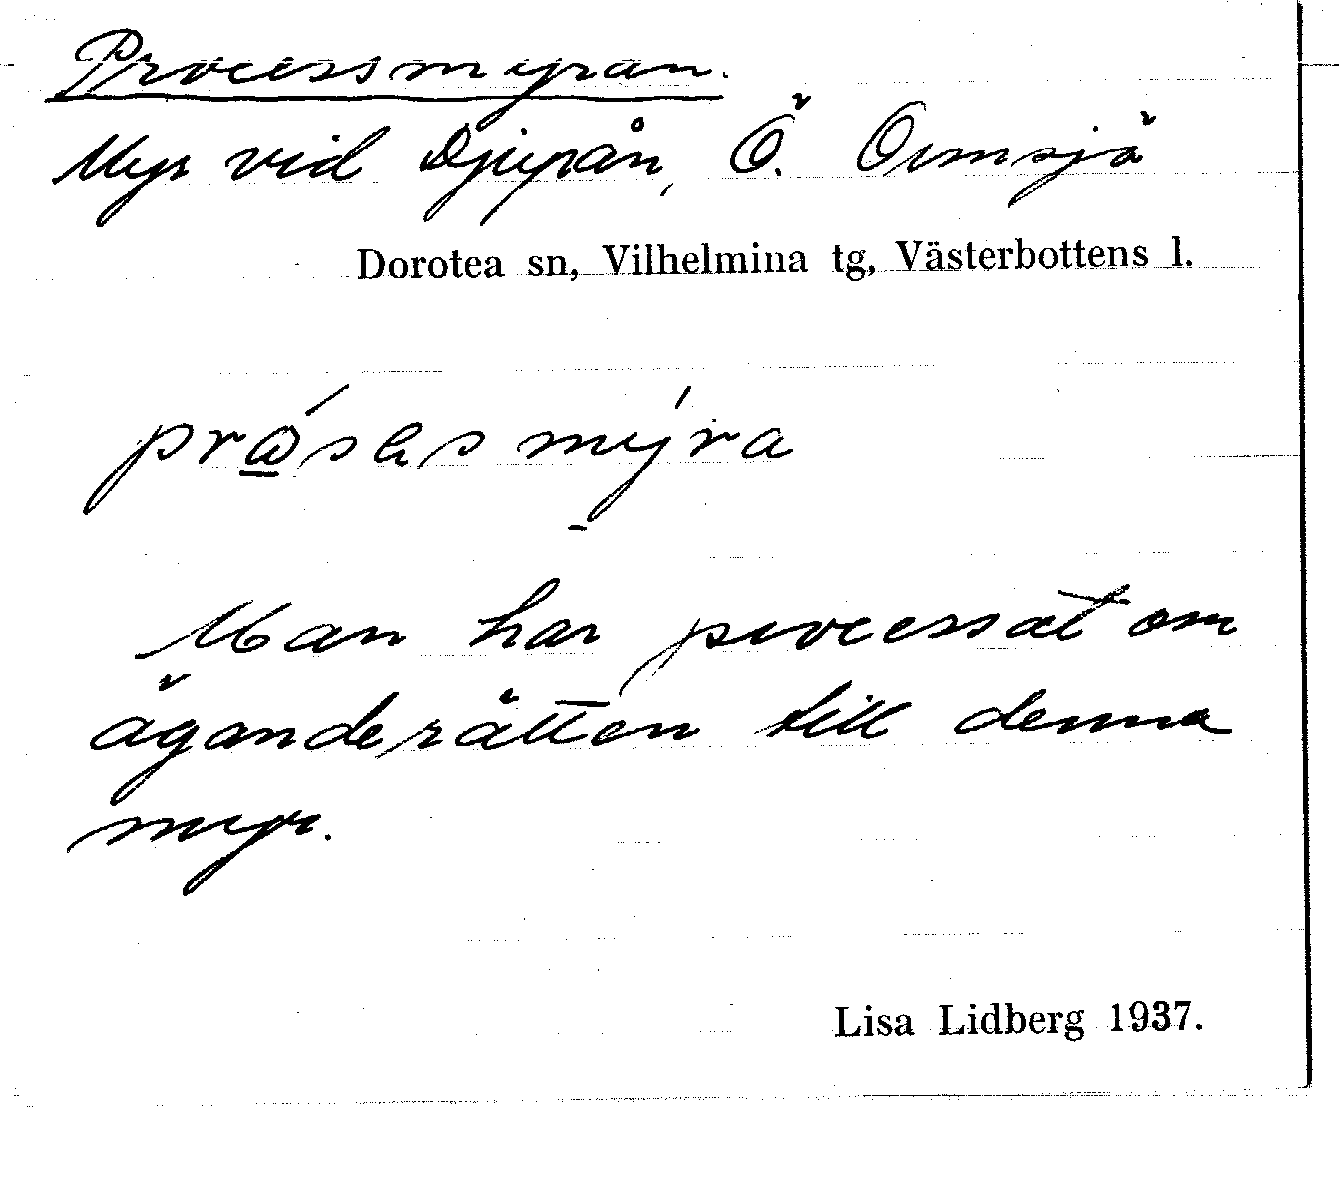 Processmyran.
Myr vid Djupån, Ö. Ormsjö
Dorotea sn, Vilhelmina tg, Västerbottens l.
Man har processat om
äganderätten till denna
myr.
Lisa Lidberg 1937.